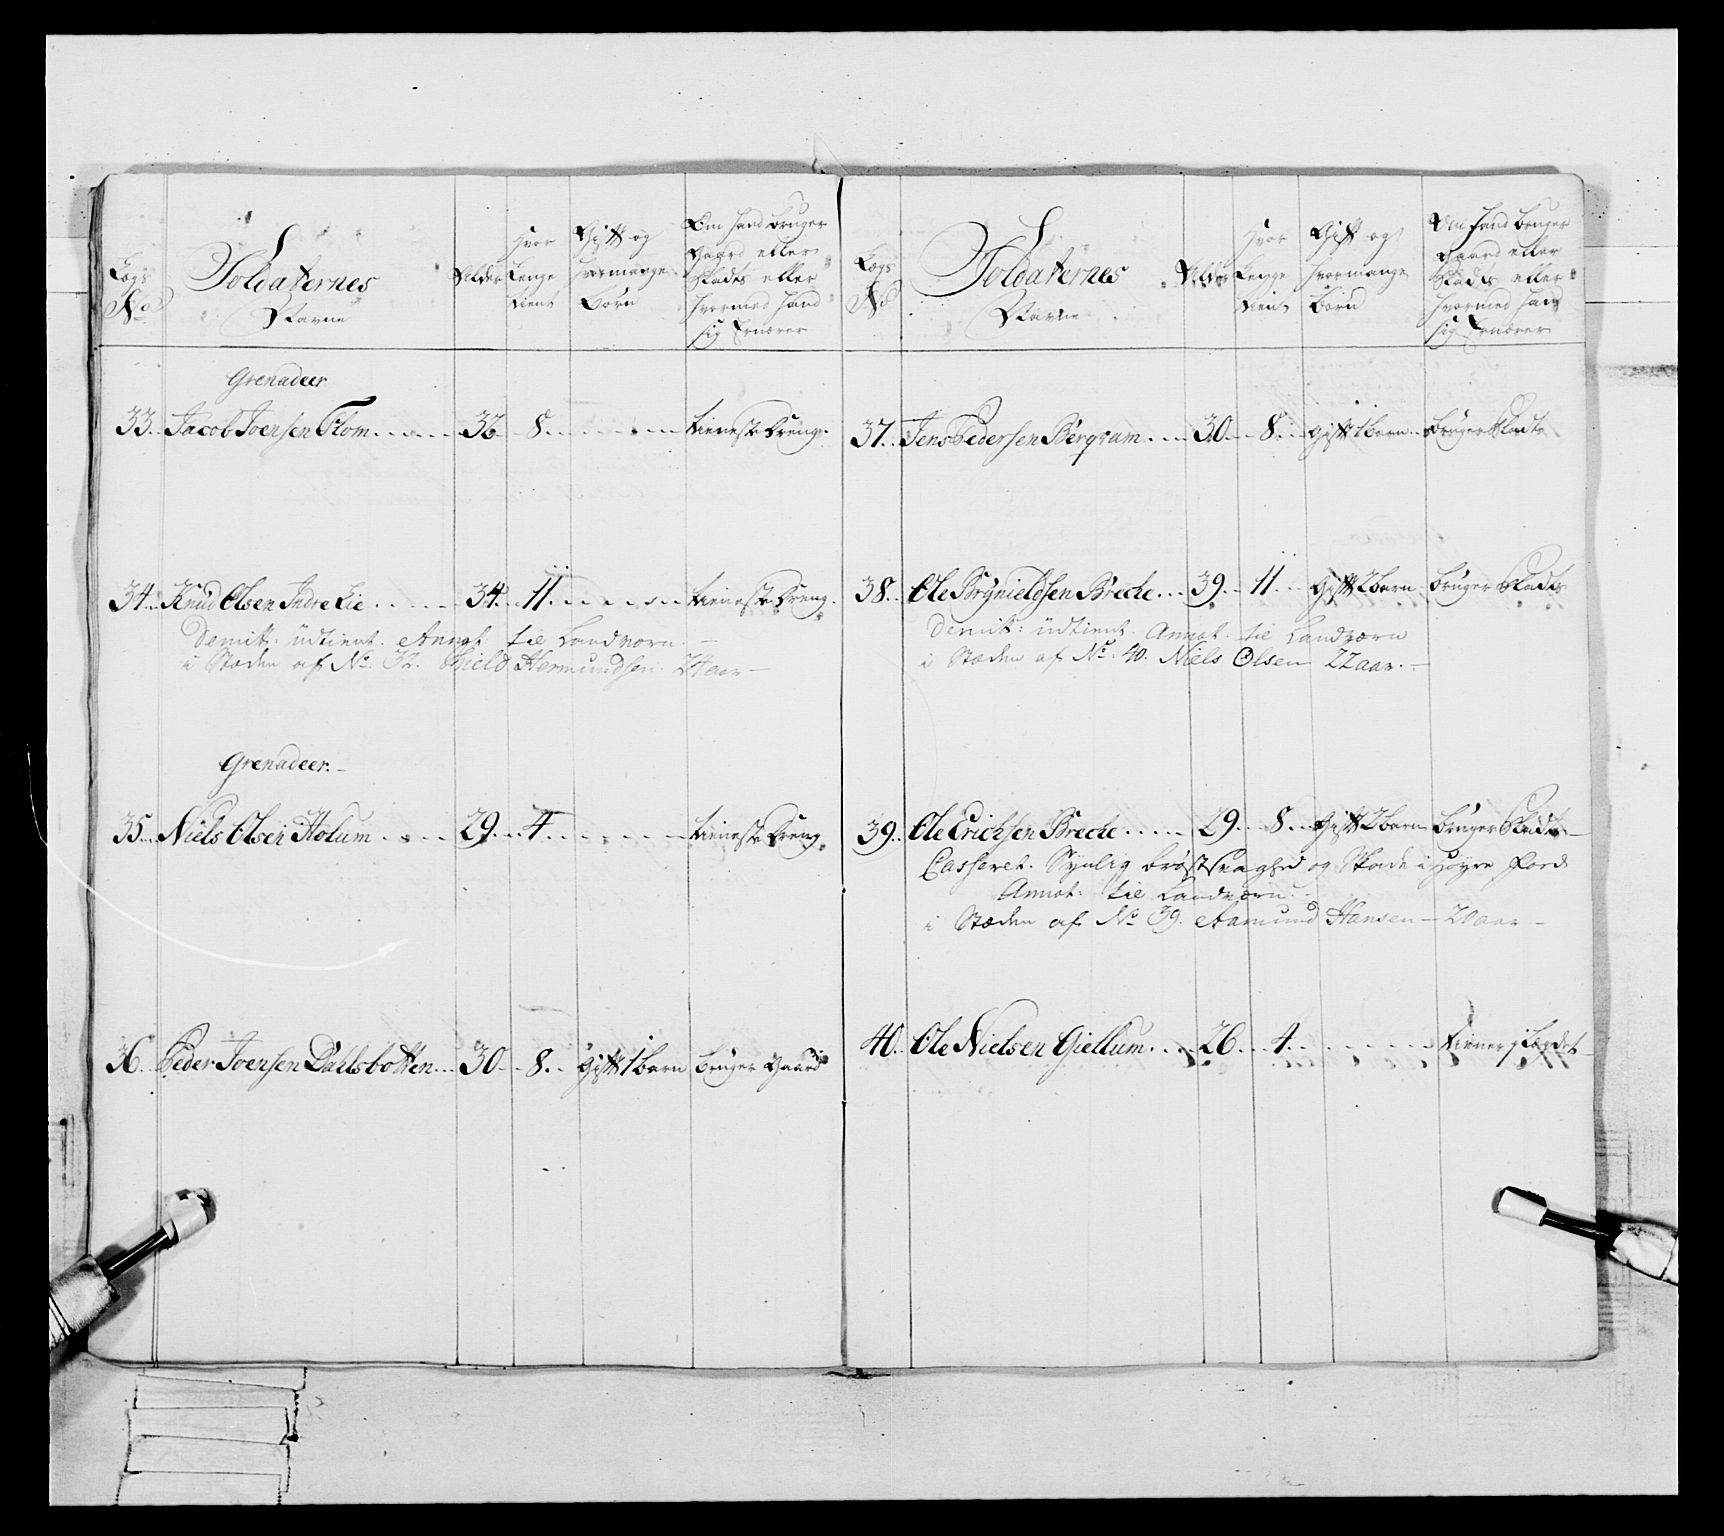 Lægs No
Soldaternes Navne
Alder
Hvor Lenge tient
Gift og hvormange Børn
Om hand bruger Gaard eller Pladts eller hvormed hand sig Ernærer
Grenadeer
33. Jacob Joensen Flom 36 8. tieneste Dreng.
34. Knud Olsen Indre Lie 34. 11. tieneste Dreng.
Demitt: udtient. Annot. til Landværn.
i Stæden af No. 32. Kield Hermundsen. 24 aar
Grenadeer.
35. Niels Olsen Holum 29. 4. tieneste Dreng.
36. Peder Joensen Dahlsbotten 30 8. Gift 1 barn bruger Gaard
Lægs No
Soldaternes Navne
Alder
Hvor Lenge tient
Gift og hvormange børn
Om hand bruger Gaard eller Pladts eller hvormed hand sig Ernærer
37. Jens Pedersen Bergram 30. 8. Gift 1 barn bruger Pladts
38. Ole Brynieldsen Breche 39. 11. Gift 2 barn bruger Pladts
Demitt: udtient. Annot. til Landværn
i Stæden af No. 40. Niels Olsen 22 aar.
39. Ole Erichsen Breche 29. 8. Gift 2 barn bruger Pladts
Casseret. Synlig brøstsvaghed og Skade i høyre Foed
Annot: til Landværn.
i Stæden af No 39. Aamund Hansen 20 aar
40. Ole Nielsen Giellum 26. 4. tiener i Bygdet